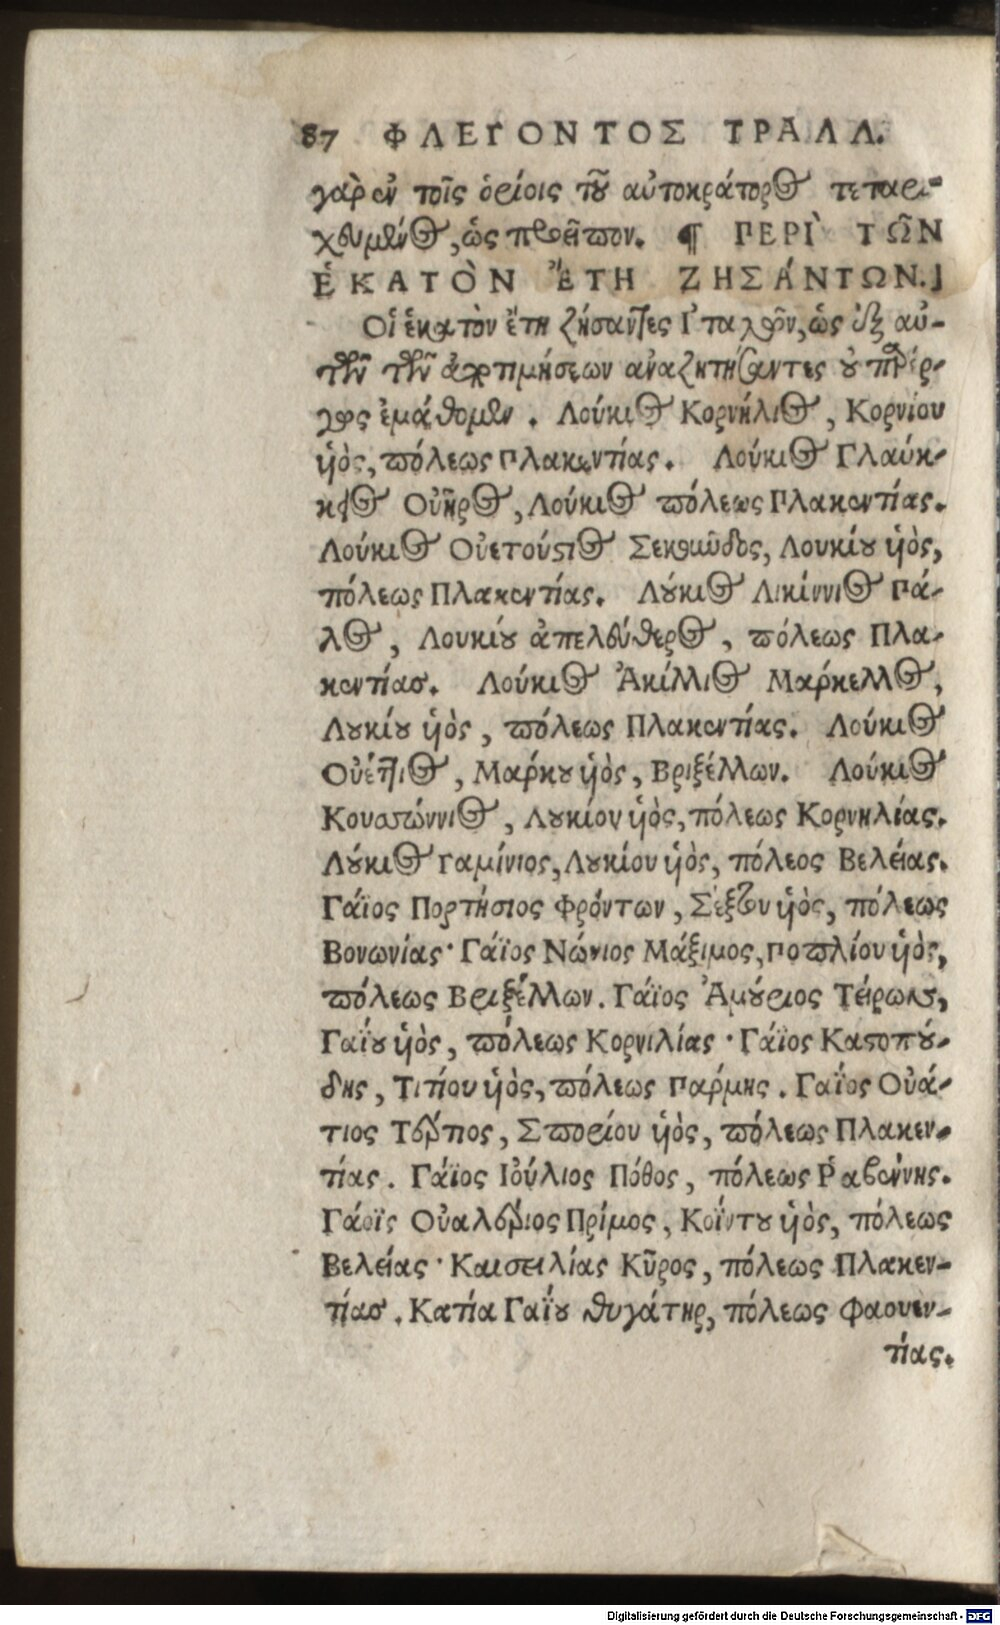 87 ΦΛΕΓΟΝΤΟΣ ΤΡΑΛΛ.
γὰρ ἐν τοῖς ὁρίοις τοῦ αὐτοκράτορος τεταρι-
χευμένος, ὡς προεῖπον. ¶ ΠΕΡΙ ̀ ΤΩ͂Ν
ἙΚΑΤῸΝ ἜΤΗ ΖΗΣΆΝΤΩΝ.]
Οἱ ἑκατὸν ἔτη ζήσαντες Ἰταλῶν, ὡς ἐξ αὐ-
τῶν τῶν ἀποτιμήσεων ἀναζητήσαντες οὐ παρέρ-
γως ἐμάθομεν. Λούκιος Κορνήλιος, Κορνίου
ὑὸς, πόλεως Πλακεντίας. Λούκιος Γλαύκ-
κιος Οὐῆρος, Λούκιος πόλεως Πλακεντίας.
Λούκιος Οὐετούστιος Σεκοῦνδος, Λουκίου ὑὸς,
πόλεως Πλακεντίας. Λούκιος Λικίννιος Πά-
λος, Λουκίου ἀπελεύθερος, πόλεως Πλα-
κεντίας. Λούκιος Ἀκίλλιος Μαρκελλος,
Λουκίου ὑὸς, πόλεως Πλακεντίας. Λούκιος
Οὐέττιος, Μαρκου ὑὸς, Βριξέλλων. Λούκιος
Λουκίου ὑὸς, πόλεως Κορνηλίας.
Λούκιος Γαμίνιος, Λουκίου ὑὸς, πόλεος Βελείας.
Γάϊος Πορτήσιος Φρόντων, Σέξτου ὑὸς, πόλεως
Βονωνίας· Γάϊος Νώνιος Μάξιμος, Ποπλίου ὑὸς,
πόλεως Βριξέλλων. Γάϊος Ἀμούριος Τείρων,
Γαΐου ὑὸς, πόλεως Κορνιλίας· Γάϊος Καστοπού-
δης, Τιτίου ὑὸς, πόλεως Παρμης. Γαΐος Οὐά-
τιος Τέρτιος, Σπορίου ὑὸς, πόλεως Πλακεν-
τίας. Γάϊος Ἰούλιος Πόθος, πόλεως Ῥαβέννης.
Γάοϊς Οὐαλέριος Πρίμος, Κοΐντου ὑὸς, πόλεως
Βελείας· Καισειλίας Κῦρος, πόλεως Πλακεν-
τίας. Κατία Γαΐου θυγάτηρ, πόλεως Φαουεν-
τίας.
Digitalisierung gefördert durch die Deutsche Forschungsgemeinschaft - DFG